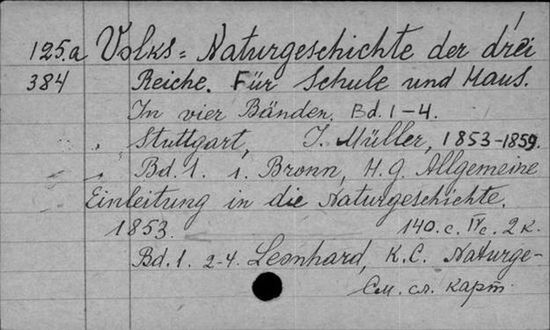 125.a Volks= Naturgeschichte der drei
384 Reiche. Für Schule und Haus.
In vier Bänden. Bd. 1-4.
Stuttgart, J. Müller, 1853-1859.
Bd. 1. i. Bronn, H. G. Allgemeine
Einleitung in die Naturgeschichte.
1853. 140. c. IV c. 2 к.
Bd. 1. 2-4. Leonhard, K. C. Naturge-
См. сл. карт.